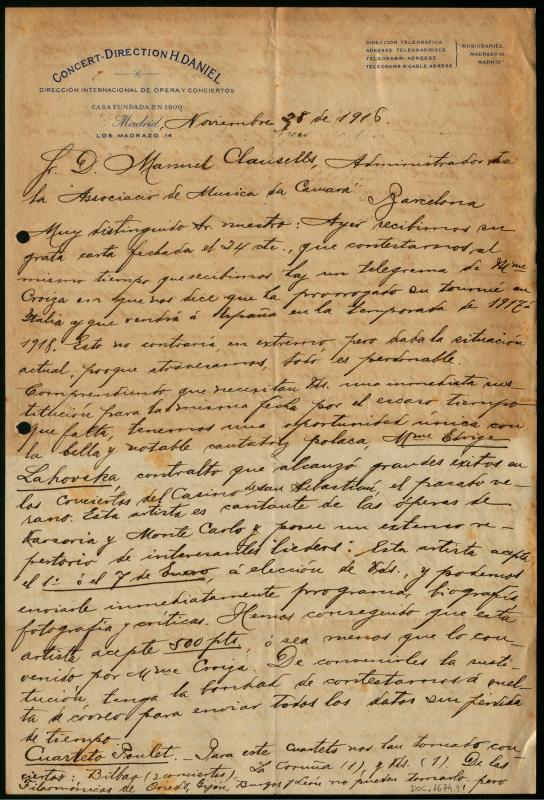 CONCERT-DIRECTION H. DANIEL
DIRECCIÓN INTERNACIONAL DE OPERA Y CONCIERTOS
CASA FUNDADA EN 1900
Madrid,
LOS MADRAZO, 14
DIRECCIÓN TELEGRÁFICA
ADRESSE TÉLÉGRAPHIQUE
TELEGRAMM-ADRESSE
TELEGRAMS & CABLE ADRESS
MUSICDANIEL
MADRAZO 14
MADRID
Noviembre 28 de 1916
Sr. D. Manuel Clausells, Administrador de
la "Associacio de Musica da Camara"
Barcelona
Muy distinguido Sr. nuestro: Ayer recibimos su
grata carta fechada el 24 cte., que contestamos al
mismo tiempo que recibimos hoy un telegrama de Mme
Croiza en que nos dice que ha prorrogado su tournée en
Italia y que vendrá á España en la temporada de 1917 á
1918. Esto nos contraría en extremo pero dada la situación
actual, porque atravesamos, todo es perdonable.
Comprendiendo que necesitan Vds. una inmediata sus-
titución para la misma fecha por el escaso tiempo
que falta, tenemos una oportunidad única con
la bella y notable cantatriz polaca, Mme Edvige
Lahovska, contralto que alcanzó grandes éxitos en
los Conciertos del Casino de San Sebastian, el pasado ve-
rano. Esta artista es cantante de las óperas de
Varsovia y Monte Carlo y posee un extenso re-
pertorio de interesantes "lieders". Esta artista acepta
el 1º ó el 7 de Enero, á elección de Vds. y podemos
enviarle inmediatamente programa, biografía
fotografía y críticas. Hemos conseguido que esta
artista acepte 500 pts, ó sea menos que lo con-
venido por Mme Croiza. De convenirles la susti-
tución tenga la bondad de contestarnos á vuel-
ta de correo para enviar todos los datos sin pérdida
de tiempo
Cuarteto Poulet. - Para este cuarteto nos han tomado con-
ciertos: Bilbao (2 conciertos), La Coruña (1), y Vds. (1). De las
Filarmónicas de Oviedo, Gijón, Burgos y León no pueden tomarlo. pero
DOC. 1674 11